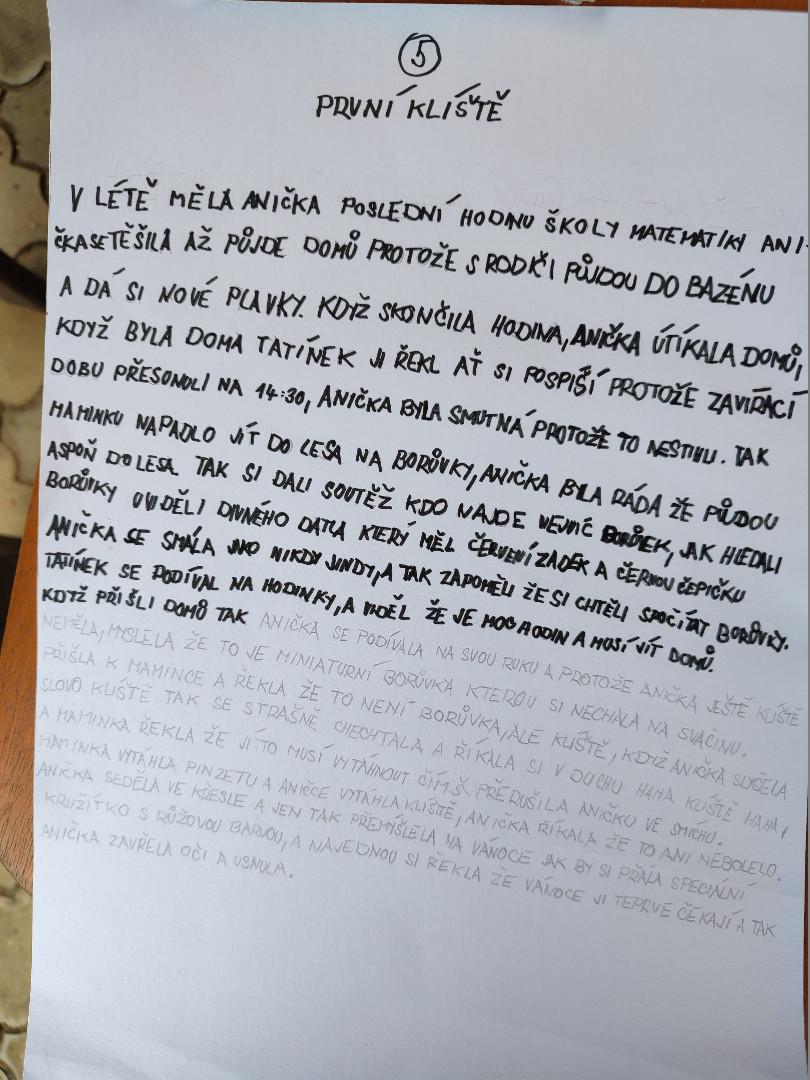 5
PRVNÍ KLÍŠTĚ
V LÉTĚ MĚLA ANIČKA POSLEDNÍ HODINU ŠKOLY MATEMATIKY ANI-
ČKA SE TĚŠILA AŽ PŮJDE DOMŮ PROTOŽE S RODIČI PŮJDOU DO BAZÉNU
A DÁ SI NOVÉ PLAVKY. KDYŽ SKONČILA HODINA, ANIČKA ÚTÍKALA DOMŮ,
KDYŽ BYLA DOMA TATÍNEK JI ŘEKL AŤ SI POSPÍŠÍ PROTOŽE ZAVÍRACÍ
DOBU PŘESONULI NA 14:30, ANIČKA BYLA SMUTNÁ PROTOŽE TO NESTIHU. TAK
MAMINKU NAPADLO JÍT DO LESA NA BORŮVKY, ANIČKA BYLA RÁDA ŽE PŮDOU
ASPOŇ DO LESA. TAK SI DALI SOUTĚŽ KDO NAJDE NEJVÍC BORŮVEK, JAK HLEDALI
BORŮVKY UVIDĚLI DIVNÉHO DATLA KTERÝ MĚL ČERVENÍ ZADEK A ČERNOU ČEPIČKU
ANIČKA SE SMÁLA JAKO NIKDY JINDY, A TAK ZAPOMĚLI ŽE SI CHTĚLI SPOČÍTAT BORŮVKY.
TATÍNEK SE PODÍVAL NA HODINKY, A VIDĚL ŽE JE MOC HODIN A MUSÍ JÍT DOMŮ.
KDYŽ PŘIŠLI DOMŮ TAK ANIČKA SE PODÍVALA NA SVOU RUKU A PROTOŽE ANIČKA JEŠTĚ KLÍŠTĚ
NEMĚLA, MYSLELA ŽE TO JE MINIATURNÍ BORŮVKA KTEROU SI NECHALA NA SVAČINU.
PŘIŠLA K MAMINCE A ŘEKLA ŽE TO NENÍ BORŮVKA, ALE KLÍŠTĚ, KDYŽ ANIČKA SLYŠELA
SLOVO KLÍŠTĚ TAK SE STRAŠNĚ CHECHTALA A ŘÍKALA SI V DUCHU HAHA KLÍŠTĚ HAHA,
A MAMINKA ŘEKLA ŽE JÍ TO MUSÍ VYTÁHNOUT ČÍMŠ PŘERUŠILA ANIČKU VE SMÍCHU.
MAMINKA VYTÁHLA PINZETU A ANIČCE VYTÁHLA KLÍŠTĚ, ANIČKA ŘÍKALA ŽE TO ANI NEBOLELO.
ANIČKA SEDĚLA VE KŘESLE A JEN TAK PŘEMÍŠLELA NA VÁNOCE JAK BY SI PŘÁLA SPECIÁLNÍ
KRUŽÍTKO S RŮŽOVOU BARVOU, A NAJEDNOU SI ŘEKLA ŽE VÁNOCE JI TEPRVE ČEKAJÍ A TAK
ANIČKA ZAVŘELA OČI A USNULA.